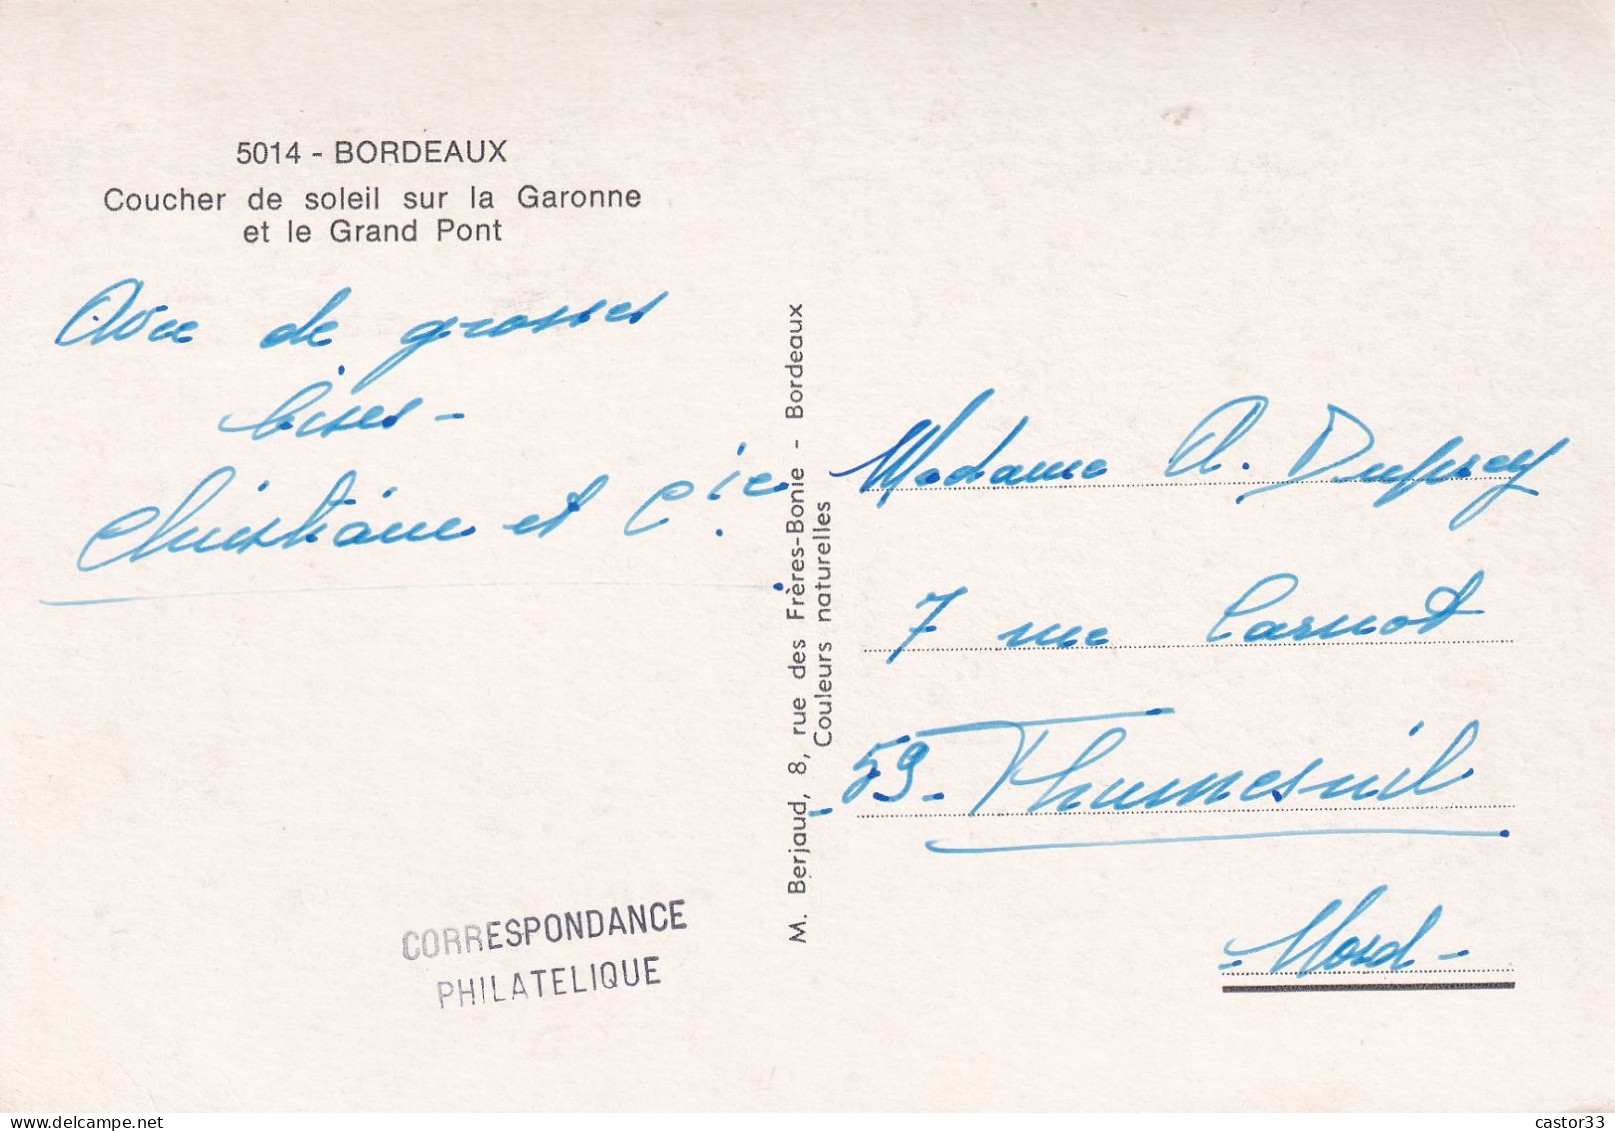 5014 - BORDEAUX
Coucher de soleil sur la Garonne
et le Grand Pont
Avec de grosses
bises -
Christiane et Cie
M. Berjaud, 8, rue des Frères-Bonie - Bordeaux
Couleurs naturelles
Madame A. Duprey
7 rue Carnot
- 59 - Thumesnil
- Nord -
CORRESPONDANCE
PHILATELIQUE
castor33